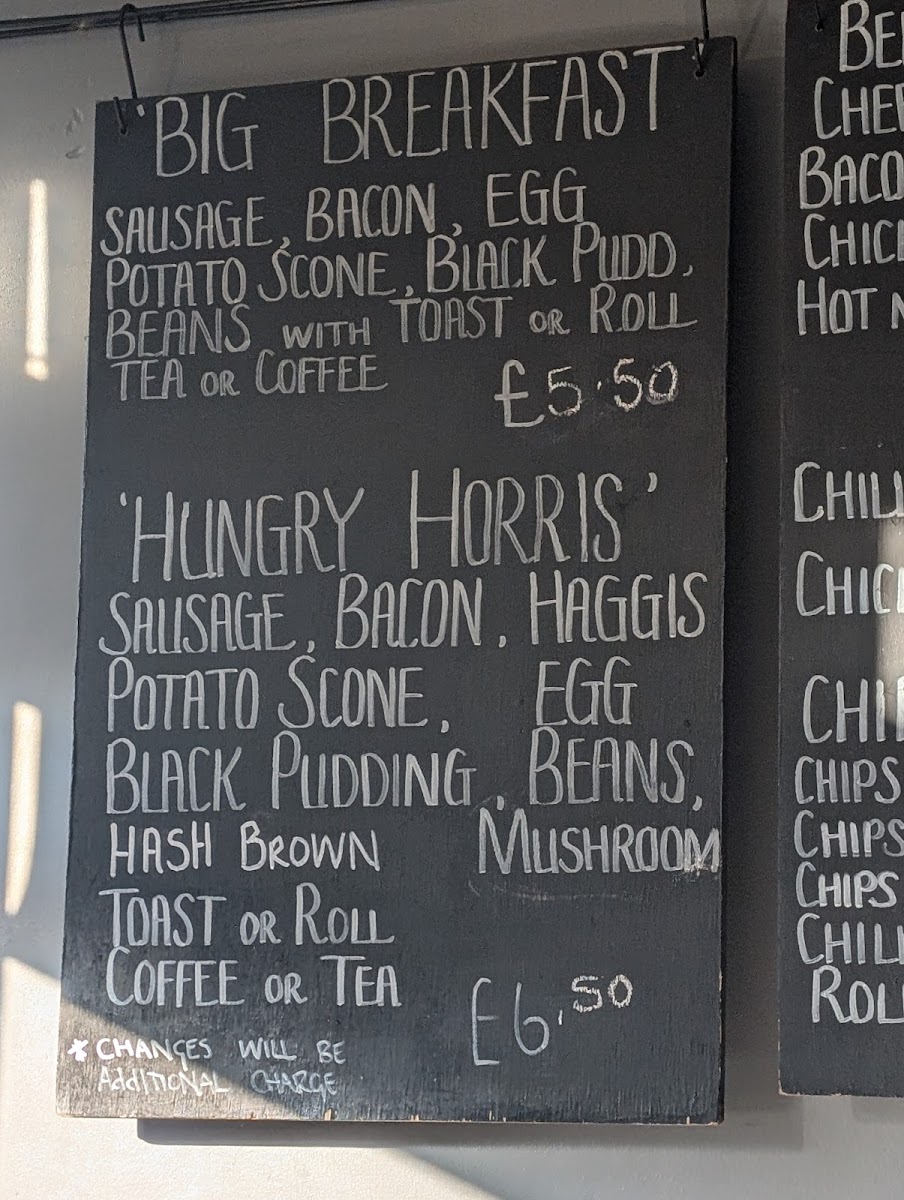 'BIG BREAKFAST
SAUSAGE, BACON, EGG
POTATO SCONE, BLACK PUDD,
BEANS WITH TOAST OR ROLL
TEA OR COFFEE
£5.50
'HUNGRY HORRIS'
SAUSAGE, BACON, HAGGIS
POTATO SCONE, EGG
BLACK PUDDING, BEANS,
HASH BROWN MUSHROOM
TOAST OR ROLL
COFFEE OR TEA
£6.50
* CHANGES WILL BE
ADDITIONAL CHARGE
HOT
CHIPS
CHIPS
CHIPS